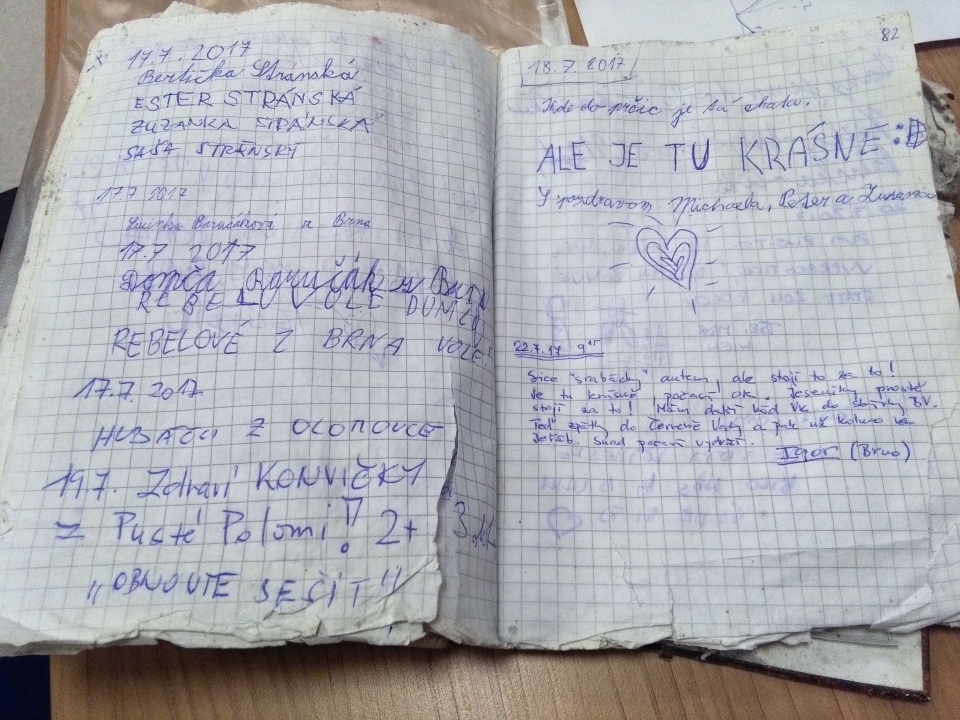 17.7. 2017
Bertička Stránská
ESTER STRÁNSKÁ
ZUZANKA STRÁNSKÁ
SAŠA STRÁNSKÝ
17.7 2017
z Brna
17.7 2017
REBELOVÉ Z BRNA VOLE!
17.7. 2017
HUBÁČCI Z OLOMOUCE
19.7. Zdraví KONVIČKY
z Pusté Polomi!! 2+
"OBNOVTE SEŠIT"
82
18.7.2017
Kde do prčic je tá chata.
ALE JE TU KRÁSNE :D
S pozdravom Michaela, Peter a Zuzana
22.7.17 9
Sice "srabácky" autem, ale stojí to za to!
Je tu krásně, počasí OK. Jeseníky prostě
stojí za to! Mám další kód VK do sbírky BV.
Teď zpátky do Černé Vody a pak už kolmo na
Jeřáb. Snad počasí vydrží.
Igor (Brno)